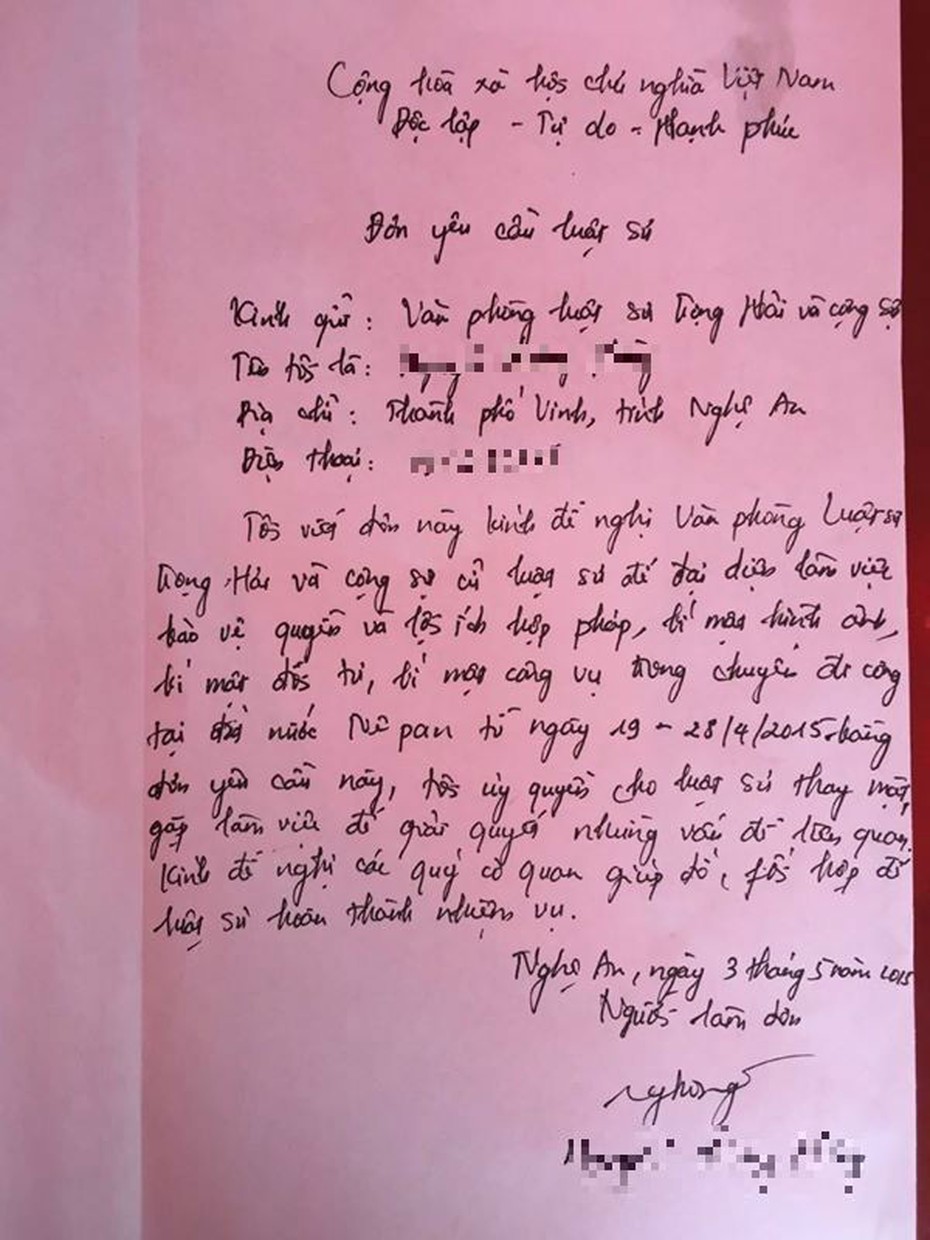 Cộng hòa xã hội chủ nghĩa Việt Nam
Độc lập - Tự do - Hạnh phúc
Đơn yêu cầu luật sư
Kính gửi: Văn phòng luật sư Trọng Hải và cộng sự
Tên tôi là:
Địa chỉ: Thành phố Vinh, tỉnh Nghệ An
Điện thoại:
Tôi viết đơn này kính đề nghị Văn phòng Luật sư
Trọng Hải và cộng sự cử luật sư để đại diện làm việc
bảo vệ quyền và lợi ích hợp pháp, bí mật hình ảnh,
bí mật đời tư, bí mật công vụ trong chuyến đi công
tại nước Nê pan từ ngày 19 - 28/4/2015. bằng
đơn yêu cầu này, tôi ủy quyền cho luật sư thay mặt,
gặp làm việc để giải quyết những vấn đề liên quan.
Kính đề nghị các quý cơ quan giúp đỡ, fối hợp để
luật sư hoàn thành nhiệm vụ.
Nghệ An, ngày 3 tháng 5 năm 2015
Người làm đơn